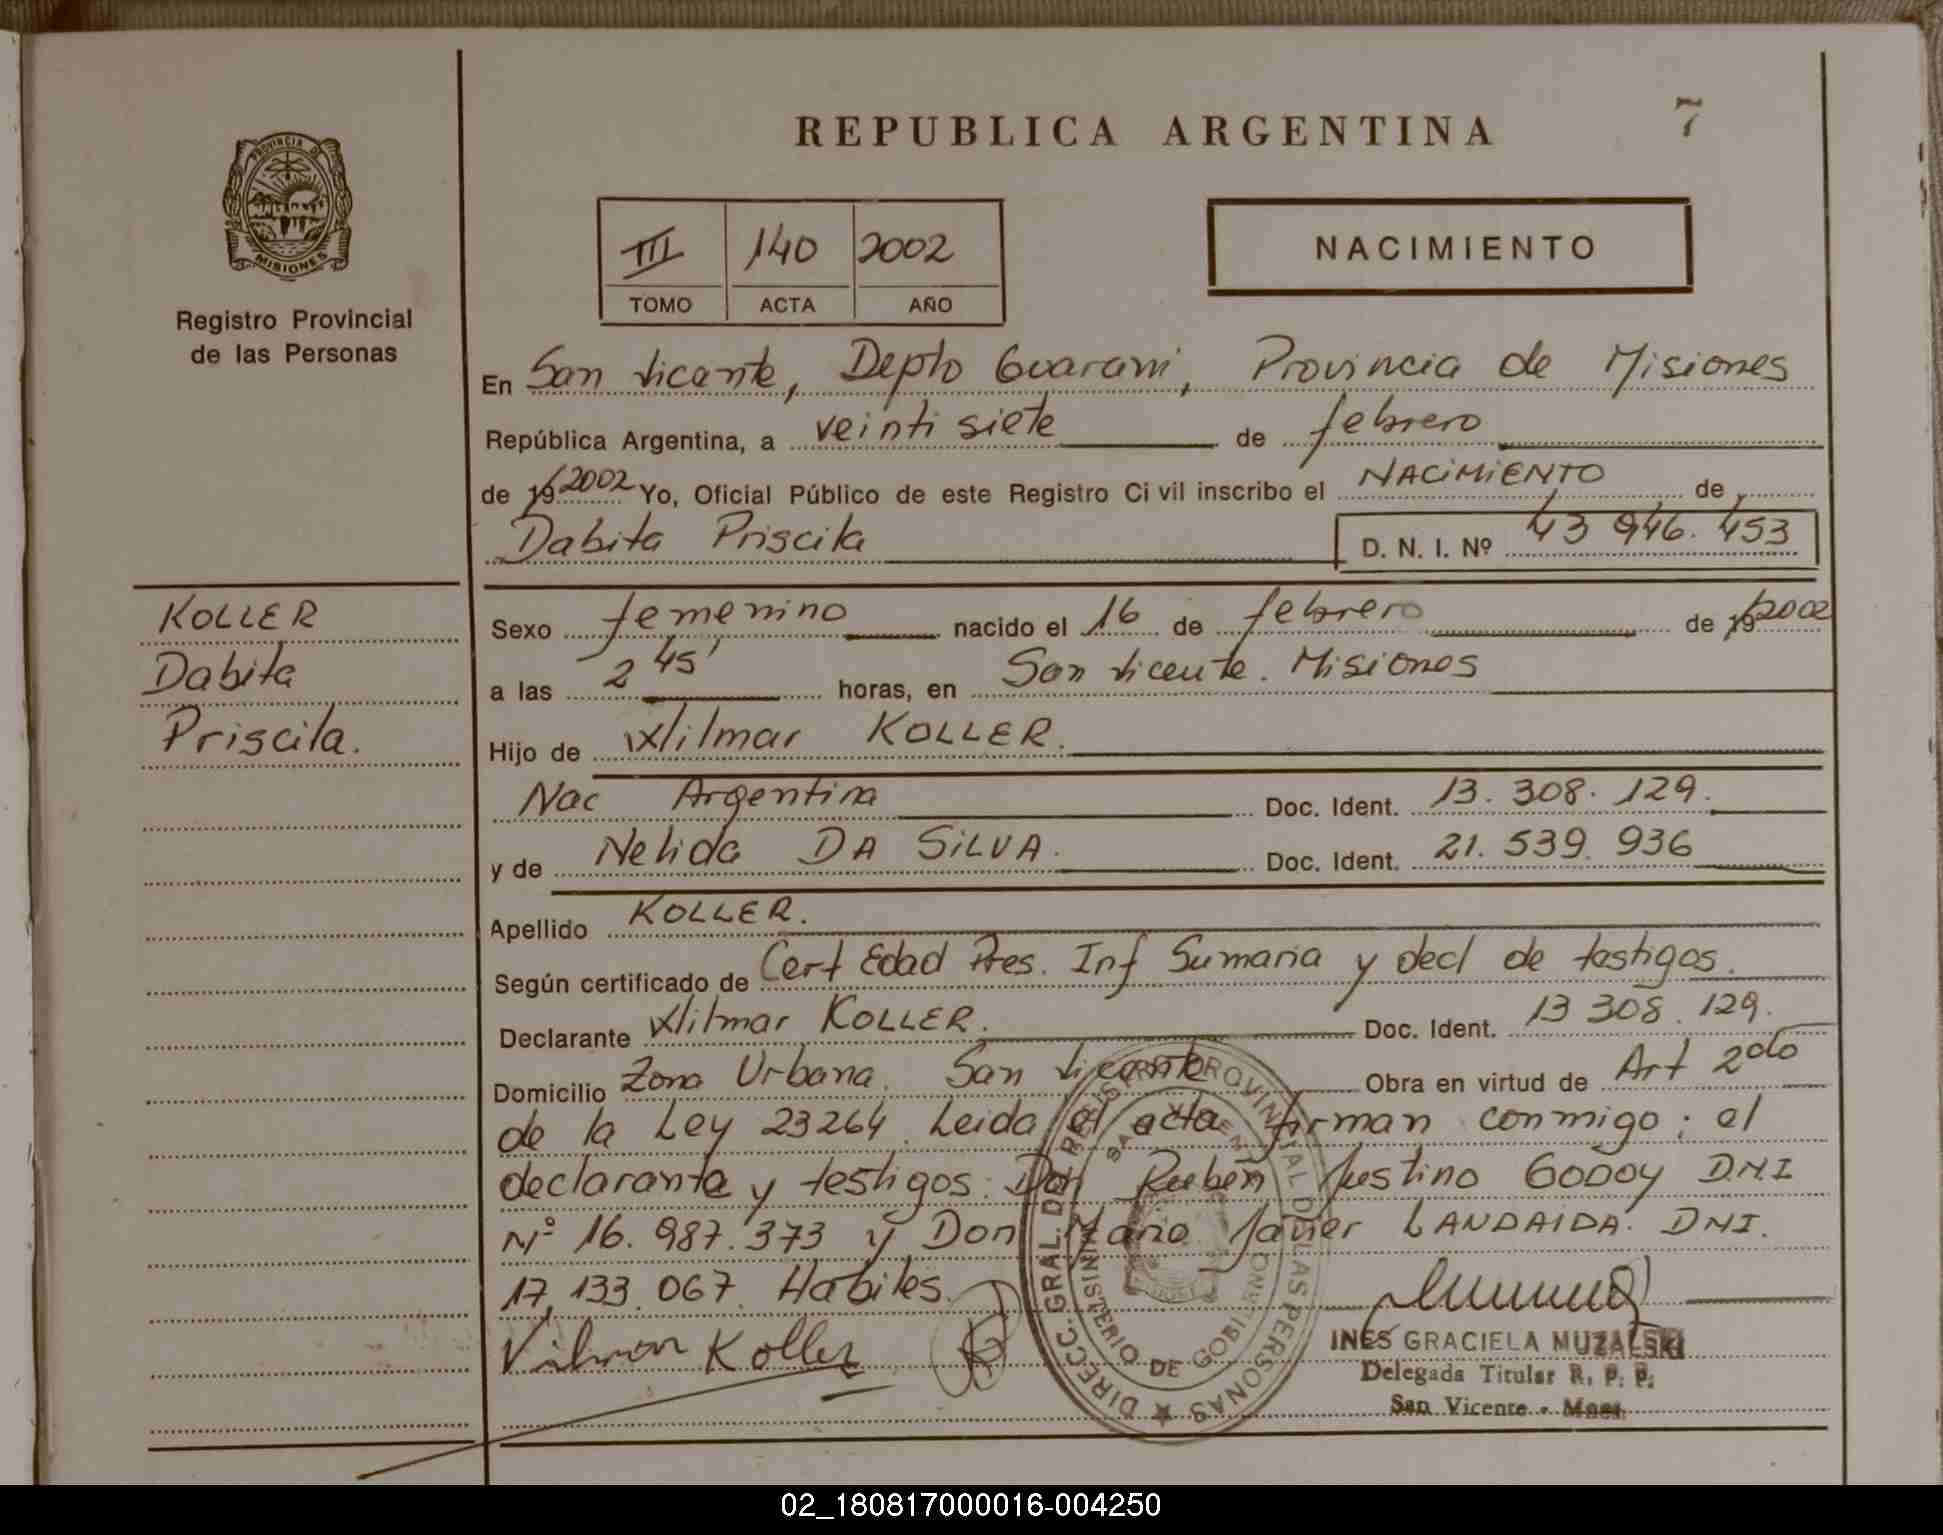 7
REPUBLICA ARGENTINA
PROVINCIA DE
MISIONES
Registro Provincial
de las Personas
III 140 2002
TOMO ACTA AÑO
NACIMIENTO
En San Vicente, Depto Guarani, Provincia de Misiones
República Argentina, a veinti siete de febrero
de 19/2002 Yo, Oficial Público de este Registro Civil inscribo el NACIMIENTO de
Dabita Priscila D. N. I. Nº 43 946.453
KOLLER
Dabita
Priscila.
Sexo femenino nacido el 16 de febrero de 19/2002
a las 2 45' horas, en San Vicente. Misiones
Hijo de Wilmar KOLLER.
Nac Argentina Doc. Ident. 13. 308. 129.
y de Nelida DA SILVA. Doc. Ident. 21. 539. 936
Apellido KOLLER.
Según certificado de Cert Edad Pres. Inf Sumaria y decl de testigos.
Declarante Wilmar KOLLER. Doc. Ident. 13 308. 129.
Domicilio Zona Urbana. San Vicente Obra en virtud de Art 2do
de la Ley 23264. Leida el acta firman conmigo; el
declarante y testigos: Don Ruben Justino GODOY DNI
Nº 16. 987. 373 y Don Mario Javier LANDAIDA. DNI.
17. 133. 067. Habiles.
Vilmar Koller
DIRECC. GRAL. DEL REGISTRO PROVINCIAL DE LAS PERSONAS
MINISTERIO DE GOBIERNO
INES GRACIELA MUZALSKI
Delegada Titular R. P. P.
San Vicente - Mnes.
02_180817000016-004250